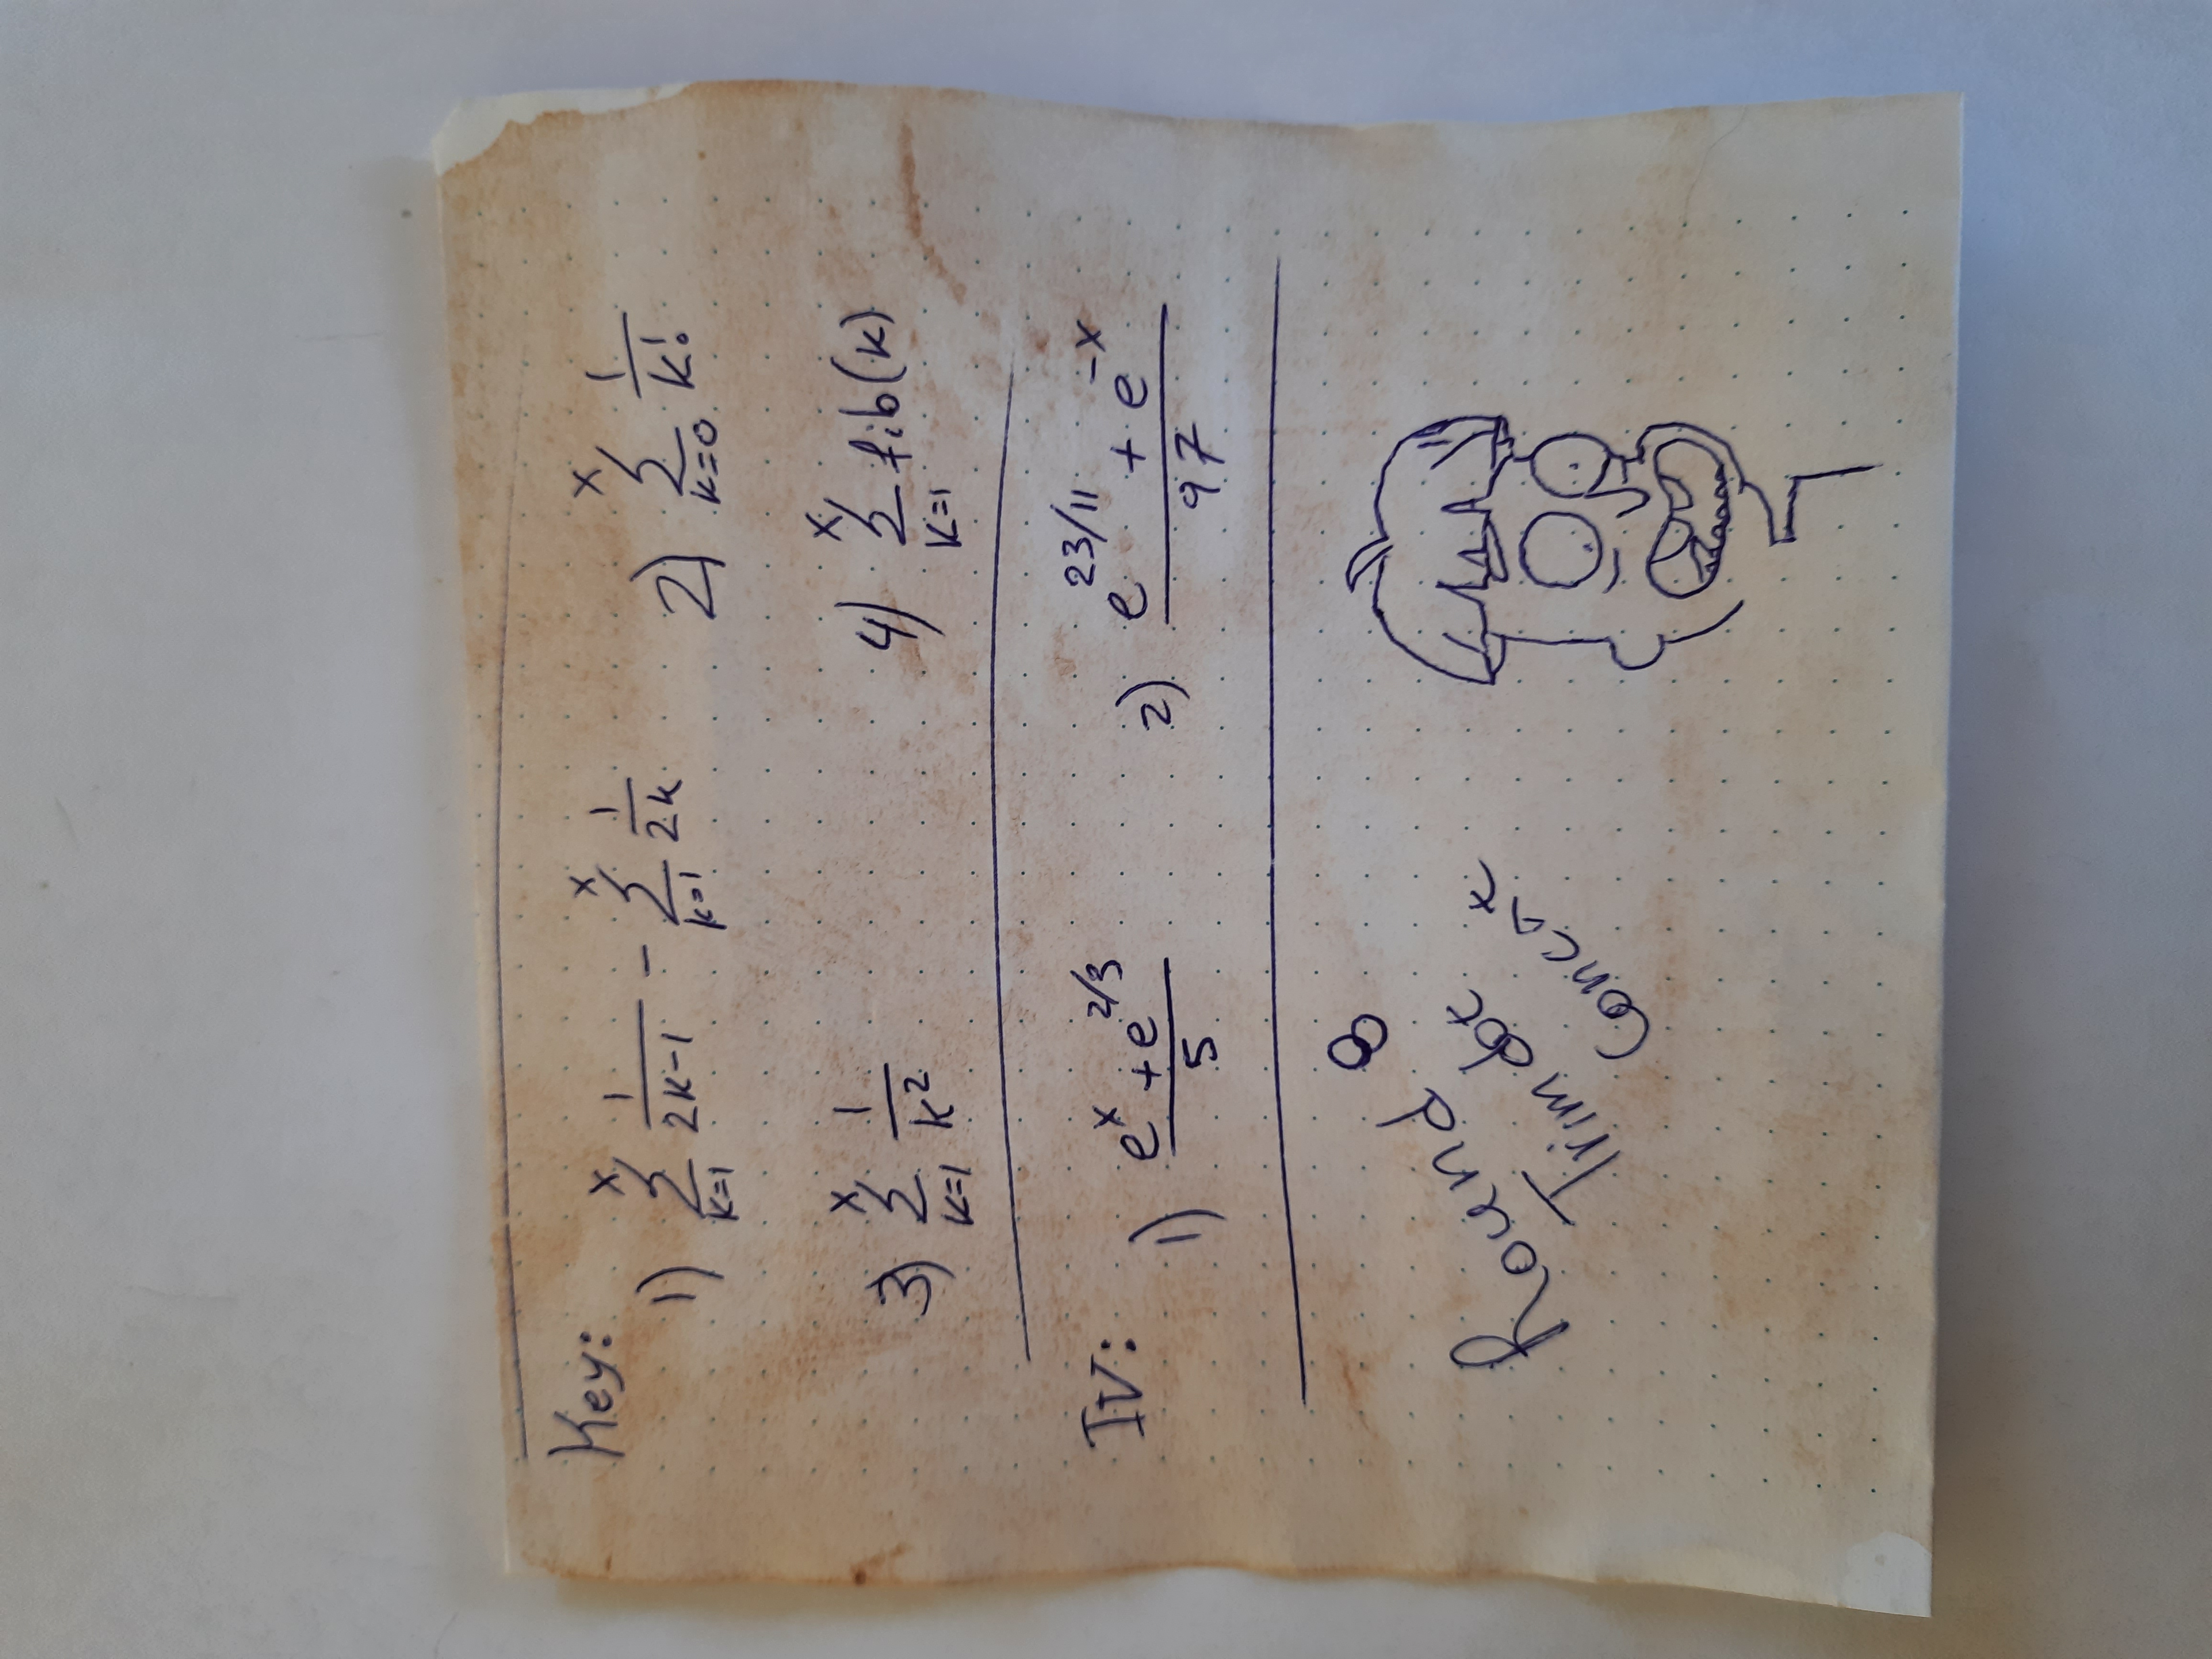 Key:
1) ∑_{k=1}^{x} 1/(2k-1) - ∑_{k=1}^{x} 1/(2k) 2) ∑_{k=0}^{x} 1/k!
3) ∑_{k=1}^{x} 1/k² 4) ∑_{k=1}^{x} fib(k)
IV:
1) (e^x + e^{2/3})/5 2) (e^{23/11} + e^{-x})/97
Round 8
Trim dot
Concat